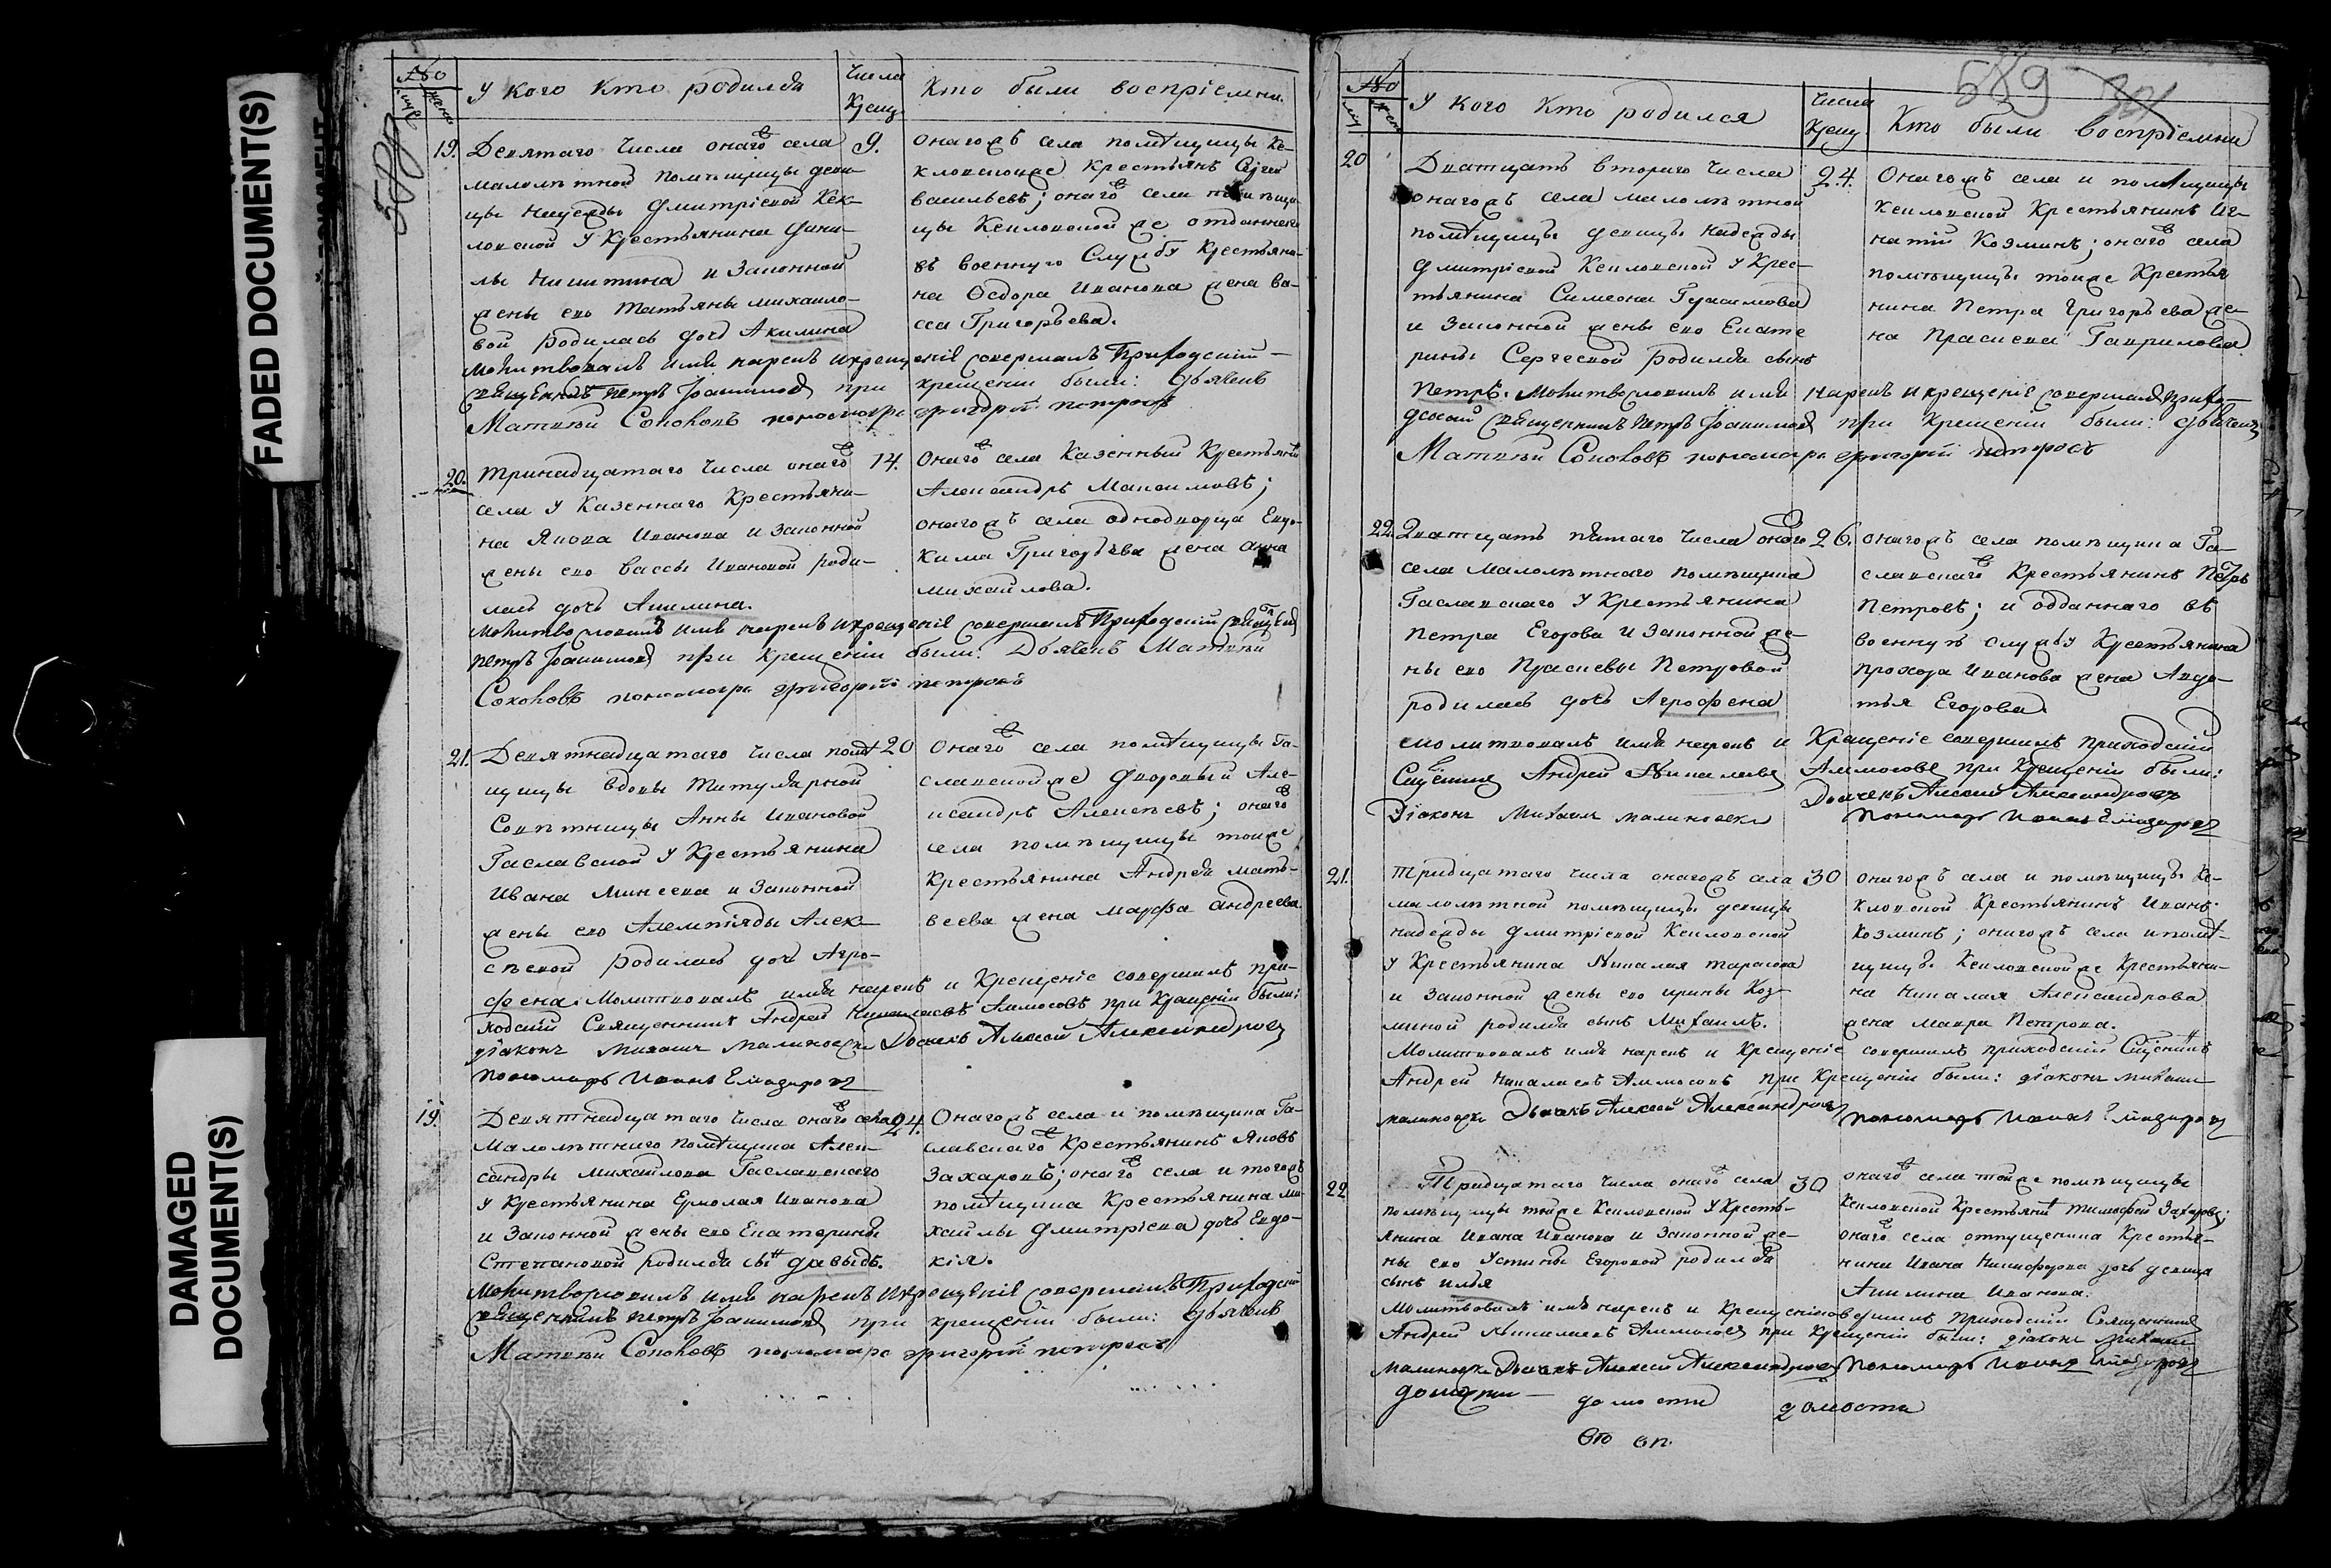 FADED DOCUMENT(S)
DAMAGED
DOCUMENT(S)
У кого кто родился
Числа
Крещ.
Кто были воспріемни.
19.
Девятаго числа онаго села
малолѣтной помѣщицы деви-
цы Надежды Дмитріевой Кек-
ловской у крестьянина Дани-
лы Никитина и законной
жены ево Татьяны Михайло-
вой родилась дочь Акилина
9.
онагожъ села помѣщицы Ке-
кловскойже крестьянъ Сергей
Васильевъ; онаго села помѣщи-
цы Кекловской же отданнаго
въ военную службу крестьяни-
на Ѳедора Иванова жена Ва-
сса Григорьева.
Молитвовалъ имя нарекъ и крещеніе совершалъ Приходскій
священникъ Петръ Іоакимовъ при крещеніи были: дьячекъ
Матвѣй Соколовъ пономарь Григорій Петровъ
20.
Тринадцатаго числа онаго
села у казеннаго крестьяни-
на Якова Иванова и законной
жены ево Вассы Ивановой роди-
лась дочь Акилина.
14.
Онаго села казенный крестьянинъ
Александръ Максимовъ;
онагожъ села однодворца Евдо-
кима Григорьева жена Анна
Михайлова.
Молитвословилъ имя нарекъ и крещеніе совершалъ Приходскій священ
Петръ Іоакимовъ при крещеніи были: Дьячекъ Матвѣй
Соколовъ пономарь Григорій Петровъ
21.
Девятнадцатаго числа помѣ
щицы вдовы титулярной
Совѣтницы Анны Ивановой
Гаславской у крестьянина
Ивана Минеева и законной
жены ево Алемпіяды Алек-
сѣевой родилась дочь Агро-
20
Онаго села помѣщицы Га-
славскойже дворовый Але-
ксандръ Алексѣевъ; онаго
села помѣщицы тоиже
крестьянина Андрея Мать-
веева жена Марфа Андреева.
фена. Молитвовалъ имя нарекъ и крещеніе совершилъ при-
ходскій Священникъ Андрей Николаевъ Аммосовъ при крещеніи были:
діаконъ Михаилъ Малиновски Дьячекъ Алексей Александровъ
пономарь Иванъ
19.
Девятнадцатаго числа онаго села
малолѣтнаго помѣщика Алек-
сандры Михайлова Гаславскаго
у крестьянина Ермолая Иванова
и законной жены ево Екатерины
Степановой родился сынъ Давыдъ.
24.
Онагожъ села и помѣщика Га-
славскаго крестьянинъ Яковъ
Захаровъ; онаго села и тогожъ
помѣщика крестьянина Ми-
хайлы Дмитріева дочь Евдо-
кія.
Молитвословилъ имя нарекъ и крещеніе совершилъ Приходскій
священникъ Петръ Іоакимовъ при крещеніи были: дьячекъ
Матвѣй Соколовъ пономарь Григорій Петровъ
589
У кого кто родился
Числа
Крещ.
Кто были воспріемни
20
Дватцать втораго числа
онагожъ села малолѣтной
помѣщицы девицы Надежды
Дмитріевой Кекловской у крес-
тьянина Симеона Герасимова
и законной жены ево Екате
рины Сергеевой родился сынъ
24.
Онагожъ села и помѣщицы
Кекловской крестьянинъ Иг-
натій Козминъ; онаго села
помѣщицы тоиже крестья
нина Петра Григорьева же-
на Праскева Гаврилова
Петръ. Молитвословилъ имя нарекъ и крещеніе совершалъ прихо-
дской священникъ Петръ Іоакимовъ при крещеніи были: дьячекъ
Матвѣй Соколовъ пономарь Григорій Петровъ
22
Дватцать пятаго числа онаго
села малолѣтнаго помѣщика
Гаславскаго у крестьянина
Петра Егорова и законной же-
ны ево Праскевы Петровой
родилась дочь Агрофена
26.
онагожъ села помѣщика Га-
славскаго крестьянинъ Петръ
Петровъ; и отданнаго въ
военную службу крестьянина
Прохора Иванова жена Авдо-
тья Егорова.
молитвовалъ имя нарекъ и крещеніе совершилъ приходскій
Сщенникъ Андрей Николаевъ Аммосовъ при крещеніи были:
Діаконъ Михаилъ Малиновски Дьячекъ Алексей Александровъ
пономарь Иванъ
21.
Тридцатаго числа онагожъ села
малолѣтной помѣщицы девицы
Надежды Дмитріевой Кекловской
у крестьянина Николая Тарасова
и законной жены ево Ирины Коз-
миной родился сынъ Михаилъ.
30
онагожъ села и помѣщицы Ке-
кловской крестьянинъ Иванъ
Козминъ; онагожъ села и помѣ-
щицы Кекловскойже крестьяни-
на Николая Александрова
жена Мавра Петрова.
Молитвовалъ имя нарекъ и крещеніе совершилъ приходскій Сщенникъ
Андрей Николаевъ Аммосовъ при крещеніи были: діаконъ Михаилъ
Малиновски Дьячекъ Алексей Александровъ пономарь Иванъ
22
Тридцатаго числа онаго села
помѣщицы тоиже Кекловской у кресть-
янина Ивана Иванова и законной же-
ны ево Устиньи Егоровой родился
сынъ Илья
30
онаго села тоиже помѣщицы
Кекловской крестьянинъ Тимофей Захаровъ;
онаго села отпущеника крестья-
нина Ивана Никифорова дочь девица
Акилина Иванова.
Молитвовалъ имя нарекъ и крещеніе совершилъ приходскій Священникъ
Андрей Николаевъ Аммосовъ при крещеніи были: діаконъ Михаилъ
Малиновски Дьячекъ Алексей Александровъ пономарь Иванъ